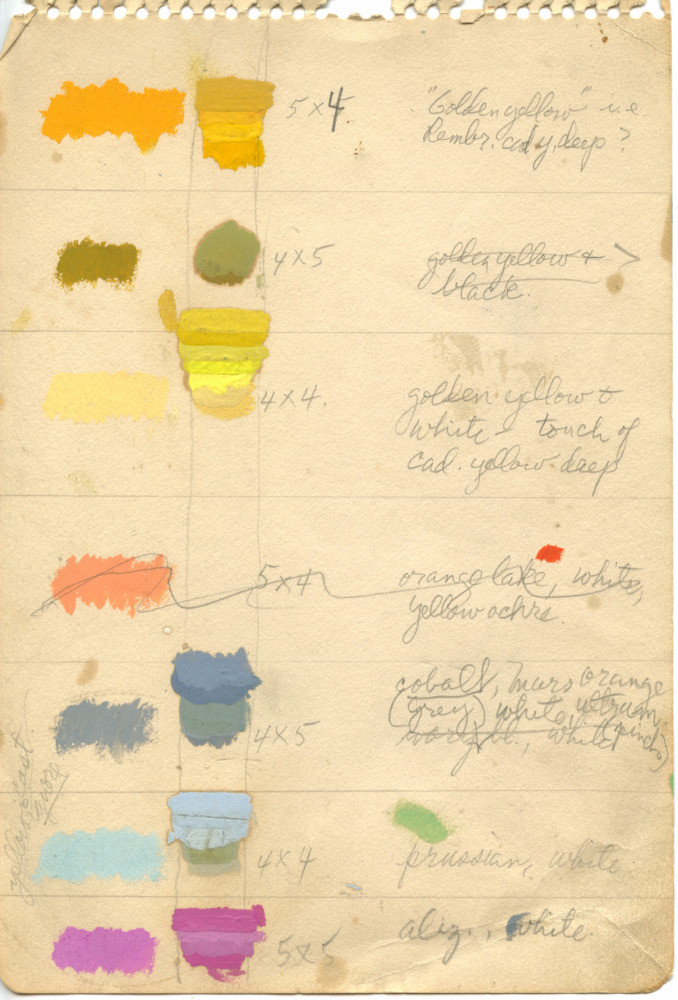 5 x 4
"Golden yellow" i.e.
Rembr. cad y, deep ?
4 x 5
golden yellow + >
black.
4 x 4.
golden yellow &
white - touch of
cad. yellow deep
5 x 4
orange lake, white,
yellow ochre.
cobalt, mars orange
(grey) white, ultram.
4 x 5
white (pinch)
yellow cast
more
4 x 4
prussian, white
aliz., white.
5 x 5